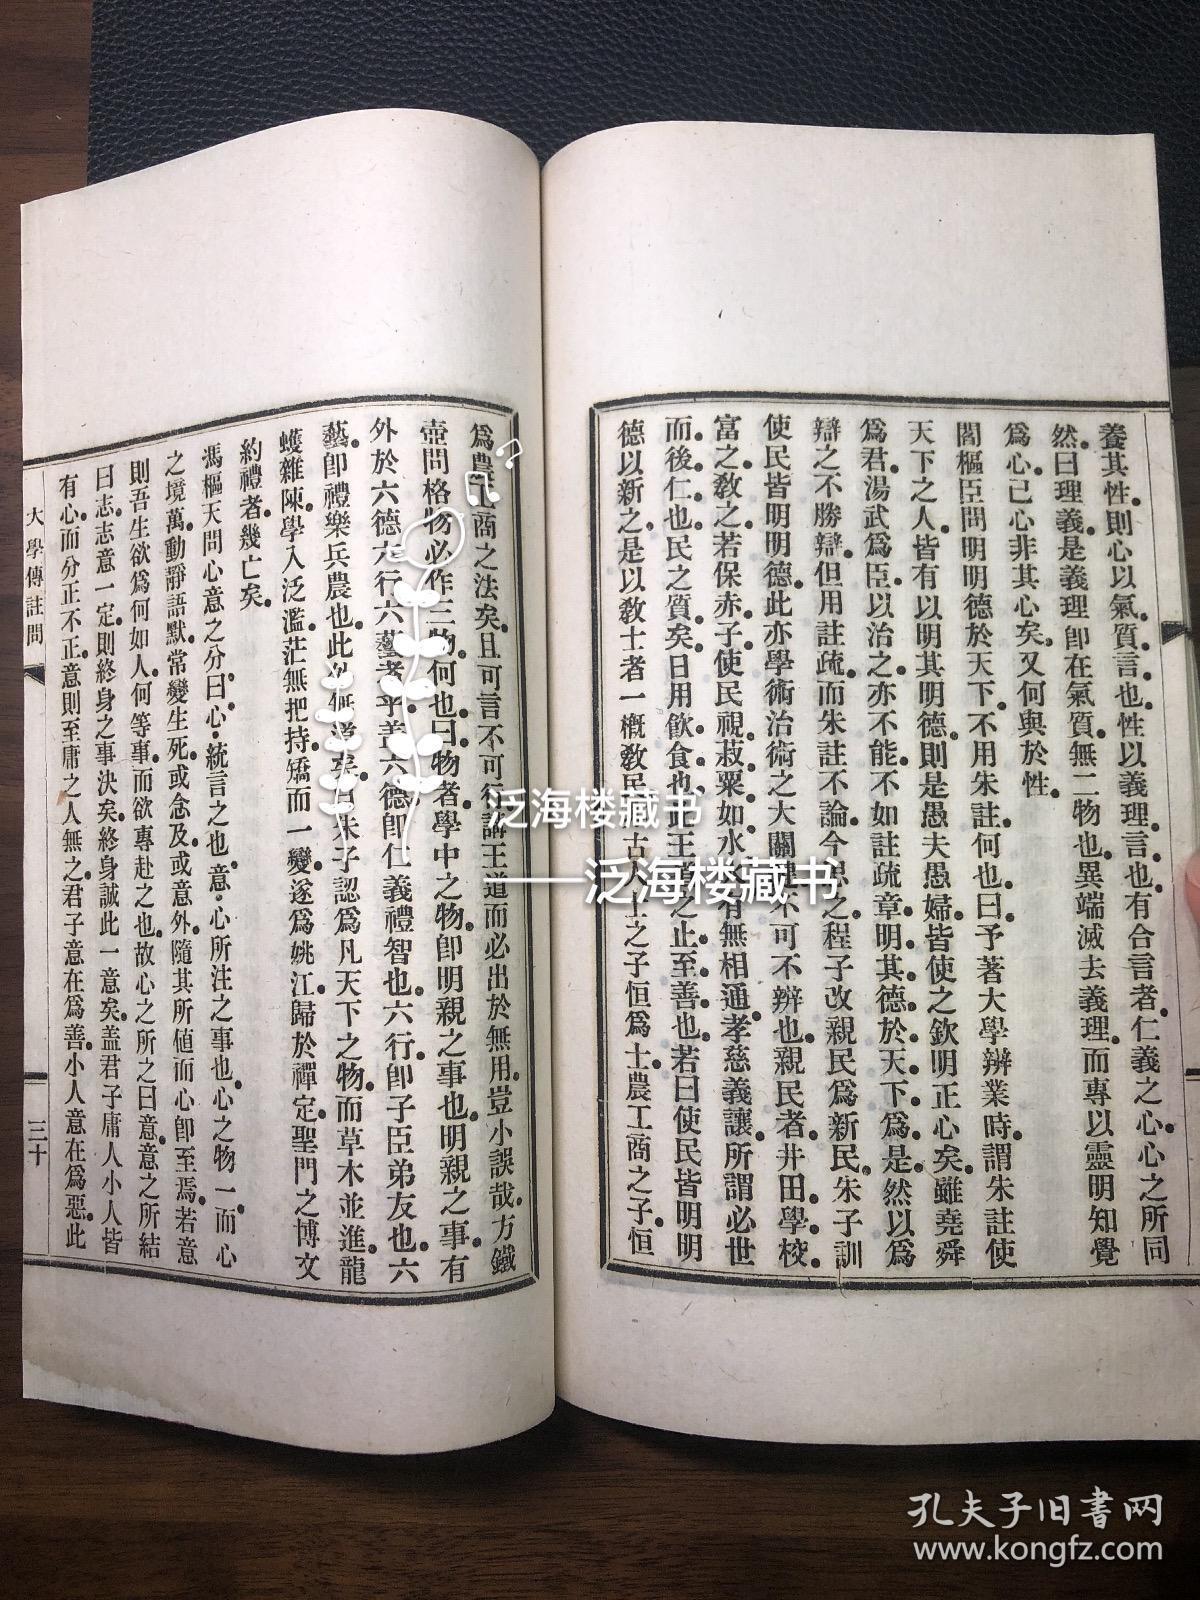 養其性則心以氣質言也性以義理言也有合言者仁義之心心之所同
然曰理義是義理卽在氣質無二物也異端滅去義理而專以靈明知覺
爲心己心非其心矣又何與於性
閻樞臣問明明德於天下不用朱註何也曰予著大學辨業時謂朱註使
天下之人皆有以明其明德則是愚夫愚婦皆使之欽明正心矣雖堯舜
爲君湯武爲臣以治之亦不能不如註疏章明其德於天下爲是然以爲
辯之不勝辯但用註疏而朱註不論今思之程子改親民爲新民朱子訓
使民皆明明德此亦學術治術之大關不可不辨也親民者井田學校
富之敎之若保赤子使民視菽粟如水有無相通孝慈義讓所謂必世
而後仁也民之質矣日用飮食也王之止至善也若曰使民皆明明
德以新之是以敎士者一槪敎民古之士之子恒爲士農工商之子恒
爲農工商之法矣且可言不可行講王道而必出於無用豈小誤哉方鐵
壺問格物必作三物何也曰物者學中之物卽明親之事也明親之事有
外於六德六行六藝者乎蓋六德卽仁義禮智也六行卽子臣弟友也六
藝卽禮樂兵農也此外無道矣朱子認爲凡天下之物而草木並進龍
蠖雜陳學入泛濫茫無把持矯而一變遂爲姚江歸於禪定聖門之博文
約禮者幾亡矣
馮樞天問心意之分曰心統言之也意心所注之事也心之物一而心
之境萬動靜語默常變生死或念及或意外隨其所值而心卽至焉若意
則吾生欲爲何如人何等事而欲專赴之也故心之所之曰意意之所結
曰志志意一定則終身之事決矣終身誠此一意矣蓋君子庸人小人皆
有心而分正不正意則至庸之人無之君子意在爲善小人意在爲惡此
大學傳註問
三十
泛海楼藏书
——泛海楼藏书
孔夫子旧书网
www.kongfz.com